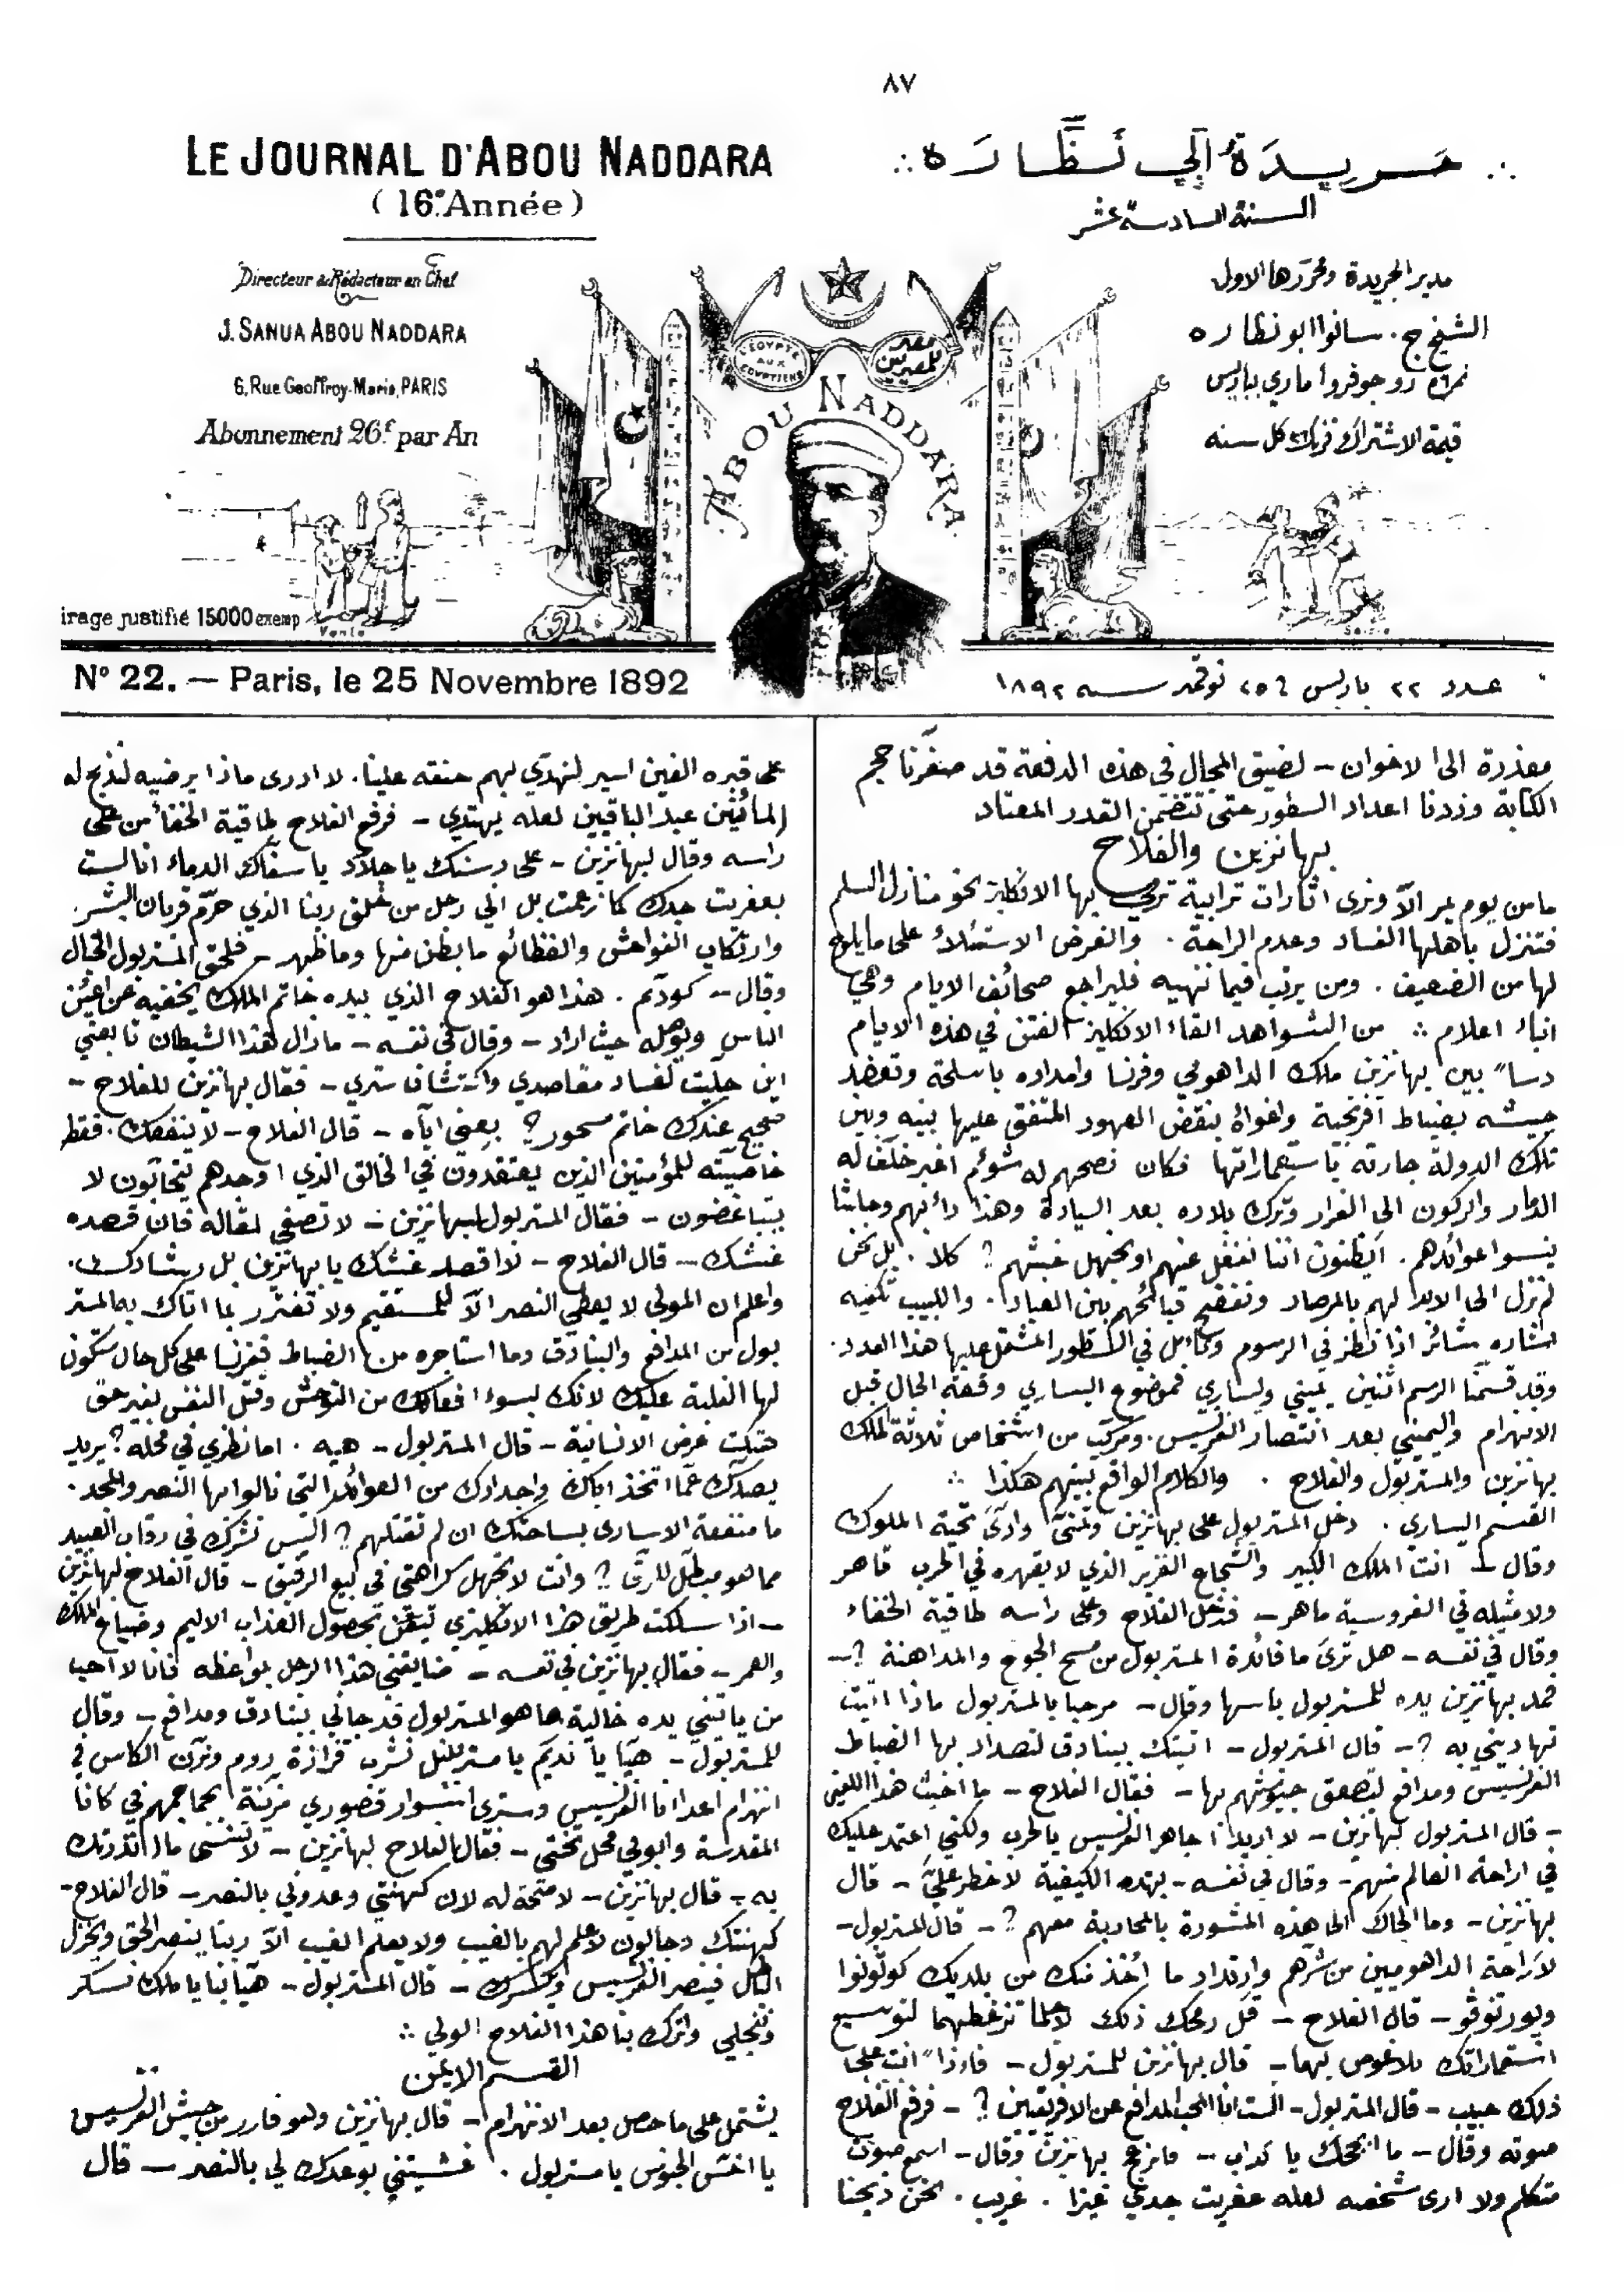 ٨٧
LE JOURNAL D'ABOU NADDARA
(16e Année)
Directeur & Rédacteur en Chef
J. SANUA ABOU NADDARA
6, Rue Geoffroy-Marie, PARIS
Abonnement 26f par An
irage justifié 15000 exemp
جريدة ابي نظارة
السنة السادسة عشر
مدير الجريدة ومحررها الاول
الشيخ ج. سانوا ابو نظاره
نمرة ٦ رو جوفروا ماري بباريس
قيمة الاشتراك فرنك ٢٦ كل سنه
L'EGYPTE AUX EGYPTIENS
مصر للمصريين
ABOU NADDARA
No 22. — Paris, le 25 Novembre 1892
عدد ٢٢ باريس ٢٥ نوفمبر سنه ١٨٩٢
معذرة الى الاخوان – لضيق المجال في هذه الدفعة قد صغرنا حجم
الكتابة وزدنا اعداد السطور حتى تتضمن القدر المعتاد
بيهانزين والفلاح
ما من يوم يمر الا ونرى اثارات ترابية ترمي بها الانكليز نحو منازل السلم
فتنزل باهلها الفساد وعدم الراحة . والغرض الاستيلاء على ما يلوح
لها من الضعيف . ومن يرتب فيما ننهيه فليراجع صحائف الايام وهي
انباء اعلام ∴ من الشواهد القاء الانكليز الفتن في هذه الايام
دسا" بين بيهانزين ملك الداهومي وفرنسا وامداده باسلحة وتعضد
جيشه بضباط افرنجية واغواه بنقض العهود المتفق عليها بينه وبين
تلك الدولة جارته باستعماراتها فكان نصحهم له شوم اغبر خلف له
الدمار والركون الى الفرار وترك بلاده بعد السيادة وهذا دأبهم وحاشا
ينسوا عوائدهم . ايظنون اننا نغفل عنهم او نجهل غشهم ؟ كلا . بل نحن
لم نزل الى الابد لهم بالمرصاد ونفضح قبائحهم بين العباد . واللبيب تكفيه
اشاره بشائر اذا نظر في الرسوم وتأمل في السطور المشتمل عليها هذا العدد .
وقد قسمنا الرسم اثنين يميني ويساري فموضوع اليساري وقعة الحال قبل
الانهزام واليميني بعد انتصار الفرنسيس . ومركب من اشخاص ثلاثة الملك
بهانزين والمستربول والفلاح . والكلام الواقع بينهم هكذا ∴
القسم اليساري . دخل المستربول على بهانزين وتمنى وادى تحية الملوك
وقال – انت الملك الكبير والشجاع الغزير الذي لا يقهره في الحرب قاهر
ولا مثيله في الفروسية ماهر – فدخل الفلاح وعلى راسه طاقية الخفاء
وقال في نفسه – هل ترى ما فائدة المستربول من مسح الجوخ والمداهنة ؟ –
فمد بهانزين يده للمستربول باسها وقال – مرحبا بالمستربول ماذا اتيت
تهاديني به ؟ – قال المستربول – اتيتك ببنادق لتصداد بها الضباط
الفرنسيس ومدافع لتصعق جيوشهم بها – فقال الفلاح – ما اخبث هذا اللعين
– قال المستربول لبهانزين – لا اريد اجاهر الفرنسيس بالحرب ولكني اعتمد عليك
في اراحة العالم منهم – وقال في نفسه – بهذه الكيفية لا خطر علي – قال
بهانزين – وما الجاك الى هذه المشورة بالمحاربة معهم ؟ – قال المستربول –
لاراحة الداهوميين من شرهم وارتداد ما اخذ منك من بلديك كوتونوا
وبورتونوفو – قال الفلاح – قل رمحك ذلك لاطما تزغطهما لتوسيع
استعماراتك بلا غوص بهما – قال بهانزين للمستربول – فاذا" انت على
ذلك حبيب – قال المستربول – الست انا المحب المدافع عن الافريقيين ؟ – فرفع الفلاح
صوته وقال – ما ابجحك يا كداب – فانزعج بهانزين وقال – اسمع صوت
متكلم ولا ارى شخصه لعله عفريت جدي غيزا . غريب . نحن ذبحنا
على قبره الفين اسير لنهدي بهم حنقه علينا . لا ادرى ماذا يرضيه لنذبح له
المأتين عبد الباقيين لعله يهتدي – فرفع الفلاح طاقية الخفاء من على
راسه وقال لبهانزين – على رسلك يا جلاد يا سفاك الدماء انا لست
بعفريت جدك كما زعمت بل اني رجل من خلق ربنا الذي حرم قربان البشر
وارتكاب الفواحش والفظائع ما بطن منها وما ظهر – فلحق المستربول الحال
وقال – كودّم . هذا هو الفلاح الذي بيده خاتم الملك يخفيه عن اعين
الناس ويوصله حيث اراد – وقال في نفسه – مازال هذا الشيطان تابعني
اين حليت لفساد مقاصدي واكتشاف سري – فقال بهانزين للفلاح –
صحيح عندك خاتم مسحور ؟ بعني اياه – قال الفلاح – لا ينفعك . فقط
خاصيته للمؤمنين الذين يعتقدون في الخالق الذي اوجدهم يتحابون لا
يتباغضون – فقال المستربول لبيهانزين – لا تصغى لمقاله فان قصده
غشك – قال الفلاح – لا اقصد غشك يا بهانزين بل رشادك .
واعلم ان المولى لا يعطي النصر الا للمستقيم ولا تغتر بما اتاك به المستر
بول من المدافع والبنادق وما استاجره من الضباط ففرنسا على كل حال ستكون
لها الغلبة عليك لانك لسوء افعالك من التوحش وقتل النفس بغير حق
هتكت عرض الانسانية – قال المستربول – هيه . اما نظري في محله ؟ يريد
يصدك عما اتخذ اباك واجدادك من العوائد التي نالوا بها النصر والمجد .
ما منفعة الاسارى بساحتك ان لم تقتلهم ؟ اليس نشرك في رقاب العبيد
مما هو مبطل للرق ؟ وانت لا تجهل كراهتي في بيع الرقيق – قال الفلاح لبهانزين
– اذا سلكت طريق هذا الانكليزي تيقن بحصول العذاب الاليم وضياع الملك
والعمر – فقال بهانزين في نفسه – ضايقني هذا الرجل بمواعظه فانا لا احب
من ياتيني يده خالية ها هو المستربول قد جاني ببنادق ومدافع – وقال
للمستربول – هيا يا نديم يا مستربول نشرب قزازة روم ونرن الكاس في
انهزام اعدانا الفرنسيس وسترى اسوار قصوري مزينة بجماجمهم في كانا
المقدسة وابومي محل تختي – فقال الفلاح لبهانزين – لا تنسى ما انذرتك
به – قال بهانزين – لا صحة له لان كهنتي وعدوني بالنصر – قال الفلاح –
كهنتك دجالون لا علم لهم بالغيب ولا يعلم الغيب الا ربنا ينصر الحق ويخزل
الكل فينصر الفرنسيس ويكسرك – قال المستربول – هيا بنا يا ملك نسكر
وننجلي واترك بنا هذا الفلاح الولي ∴
القسم الايمن
يشتمل على ما حصل بعد الانهزام – قال بهانزين وهو فارر من جيش الفرنسيس
يا اخس الجنوس يا مستربول . غشيتني بوعدك لي بالنصر – قال